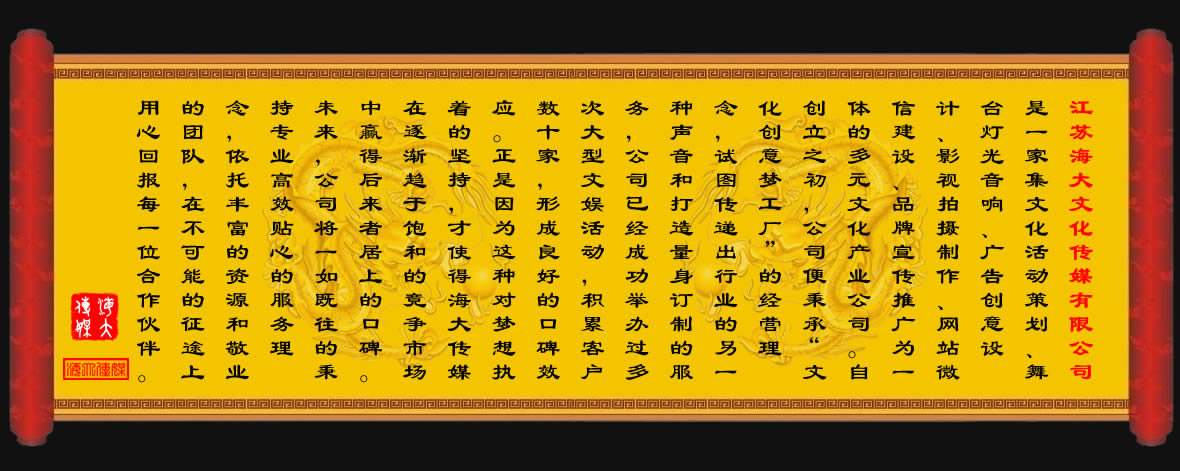 江苏海大文化传媒有限公司
是一家集文化活动策划、舞
台灯光音响、广告创意设
计、影视拍摄制作、网站微
信建设、品牌宣传推广为一
体的多元文化产业公司。自
创立之初，公司便秉承“文
化创意梦工厂”的经营理
念，试图传递出行业的另一
种声音和打造量身订制的服
务，公司已经成功举办过多
次大型文娱活动，积累客户
数十家，形成良好的口碑效
应。正是因为这种对梦想执
着的坚持，才使得海大传媒
在逐渐趋于饱和的竞争市场
中赢得后来者居上的口碑。
未来，公司将一如既往的秉
持专业高效贴心的服务理
念，依托丰富的资源和敬业
的团队，在不可能的征途上
用心回报每一位合作伙伴。
海大
傳媒
海大傳媒